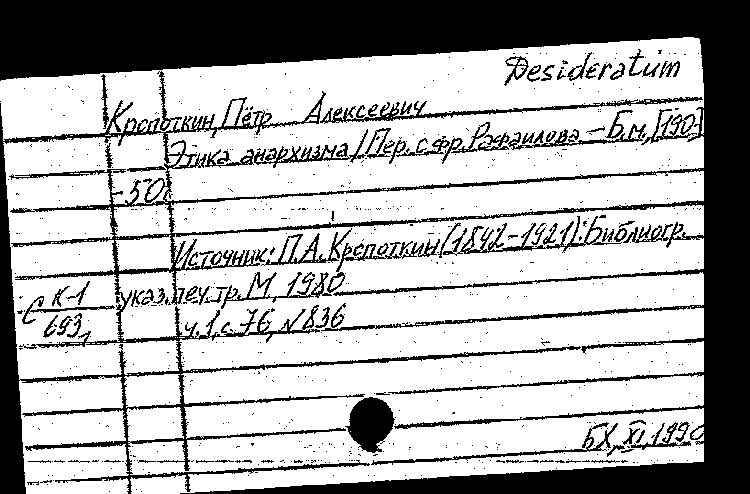 Desideratum
Кропоткин, Пётр Алексеевич
Этика анархизма / Пер. с фр. Рафаилова – Б.м., [190-]
-50с
Источник: П.А. Кропоткин (1842-1921): Библиогр.
указ. печ. тр. М, 1980
ч.1, с. 76, №836
С К-1
693,
БХ, XI, 1990